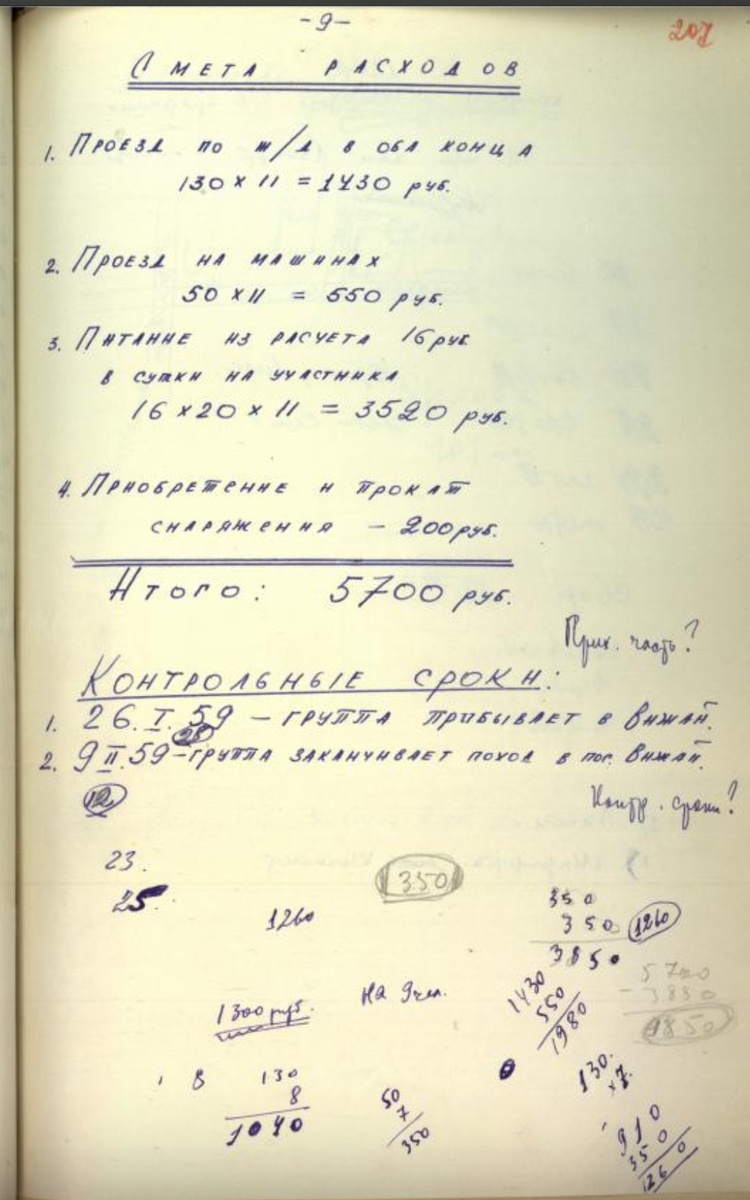 -9-
207
Смета расходов
1. Проезд по ж/д в оба конца
130 x 11 = 1430 руб.
2. Проезд на машинах
50 x 11 = 550 руб.
3. Питание из расчета 16 руб
в сутки на участника
16 x 20 x 11 = 3520 руб.
4. Приобретение и прокат
снаряжения - 200 руб.
Итого: 5700 руб.
Прих. часть?
Контрольные сроки:
1. 26.I.59 - группа прибывает в Вижай.
28
2. 9 II.59 - группа заканчивает поход в пос. Вижай.
12
Контр. сроки?
23.
25.
350
1260
350
350
3850
1260
1300 руб.
на 9 чел.
1430
550
1980
5700
- 3850
1850
В
130
8
1040
50
7
350
130
x7
910
350
1260